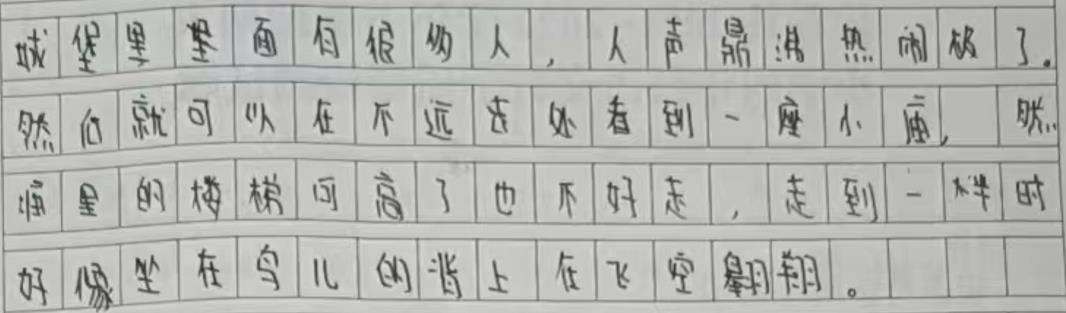 城堡里坚面有很的人，人声鼎沸热闹极了。
然后就可以在不远走处看到一座小庙，然
庙里的楼梯可高了也不好走，走到一样时
好像坐在鸟儿的背上在飞空翱翔。